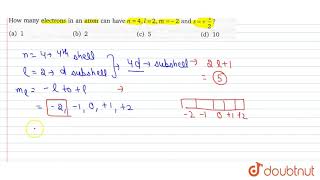 How many electrons in an atom can have n = 4, l = 2, m = - 2 and s = + 1/2?
(a) 1 (b) 2 (c) 5 (d) 10
n = 4 → 4th shell
l = 2 → d subshell
4d → subshell → 2l+1
= 5
ml = - l to + l →
= -2, -1, 0, +1, +2
-2 -1 0 +1 +2
doubtnut